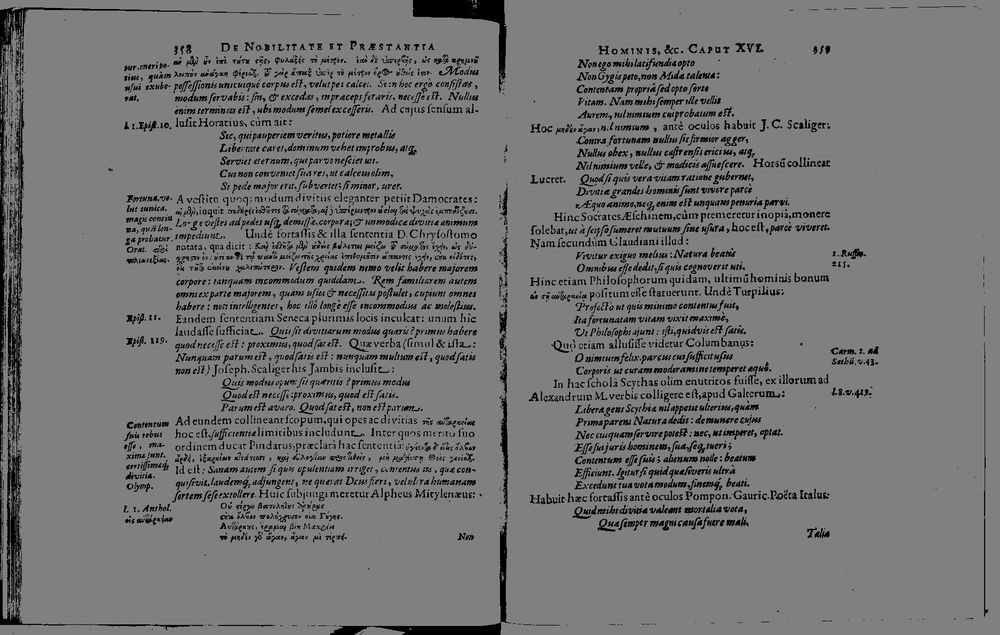 358 DE NOBILITATE ET PRÆSTANTIA
sur. oneri po-
tius, quàm
usui exube-
rat.
Modus
possessionis unicuique corpus est, velut pes calcei. Si in hoc ergo consistas,
modum servabis: sin, & excedas, in præceps feraris, necesse est. Nullus
enim terminus est, ubi modum semel excesseris. Ad cujus sensum al-
l. 1. Epist. 10.
lusit Horatius, cùm ait:
Sic, qui pauperiem veritus, potiore metallis
Libertate caret, dominum vehet improbus, atq́,
Serviet æternum, qui parvo nesciet uti.
Cui non conveniet sua res, ut calceus olim,
Si pede major erit, subvertet; si minor, uret.
Fortuna, ve-
lut tunica,
magis concin-
na, quã lon-
ga probatur.
Orat.
A vestĩen quoq; modum divitiis eleganter petiit Damocrates:
inquit
Longæ vestes ad pedes usq, demissæ, corpora; & immodicæ divitiæ animum
impediunt. Undè fortassis & illa sententia D. Chrysostomo
notata, qua dicit:
Vestem quidem nemo velit habere majorem
corpore: tanquam incommodum quiddam. Rem familiarem autem
omni ex parte majorem, quam usus & necessitas postulet, cupiunt omnes
habere: non intelligentes, hoc illo longè esse incommodius ac molestius.
Epist. 11.
Eandem sententiam Seneca plurimis locis inculcat: unum hic
laudasse sufficiat. Quis sit divitiarum modus quæris? primus habere
Epist. 119.
quod necesse est: proximus, quod sat est. Quæ verba (simul & ista:
Nunquam parum est, quod satis est: nunquam multum est, quod satis
non est) Joseph. Scaliger his Jambis inclusit:
Quis modus opum sit quæritis? primus modus
Quod est necesse: proximus, quod est satis.
Parum est avaro. Quod sat est, non est parum.
Contentum
suis rebus
esse, ma-
ximæ sunt,
certissimæq́,
divitiæ.
Olymp.
Ad eundem collineant scopum, qui opes ac divitias
hoc est, sufficientiæ limitibus includunt. Inter quos meritò suo
ordinem ducat Pindarus, præclarâ hac sententiâ:
Id est: Sanam autem si quis opulentiam irriget, contentus iis, quæ con-
quisivit, laudemq́, adjungens, ne quærat Deus fieri, velut ultra humanam
sortem sese extollere. Huic subjungi meretur Alpheus Mitylenæus:
l. 1. Anthol.
Non
HOMINIS, &c. CAPUT XVI. 359
Non ego mihi latifundia opto
Non Gygis peto, non Midæ talenta:
Contentam propriâ sed opto sorte
Vitam. Nam mihi semper ille vellit
Aurem, nil nimium cui probatum est.
Hoc nil nimium, antè oculos habuit J. C. Scaliger:
Contra fortunam nullus sit firmior agger,
Nullus obex, nullus castrensis ericius, atq́,
Nil nimium velle, & modicis assuescere. Horsũ collineat
Lucret. Quod si quis vera vitam ratione gubernet,
Divitiæ grandes homini sunt vivere parcè
Æquo animo, neq, enim est unquam penuria parvi.
Hinc Socrates Æschinem, cùm premeretur inopiâ, monere
solebat, ut à seipso sumeret mutuum sine usura, hoc est, parcè viveret.
Nam secundum Claudiani illud:
Vivitur exiguo melius: Natura beatis
Omnibus esse dedit, si quis cognoverit uti.
1. Ruffin.
215.
Hinc etiam Philosophorum quidam, ultimũ hominis bonum
positum esse statuerunt. Undè Turpilius:
Profectò ut quis minimo contentus fuit,
Ita fortunatam vitam vixit maximè,
Ut Philosophi ajunt: isti, quidvis est satis.
Quò etiam allusisse videtur Columbanus:
O nimium felix, parcus cui sufficit usus
Corporis ut curam moderamine temperet æquo.
Carm. 1. ad
Sethũ, v. 43.
In hac scholâ Scythas olim enutritos fuisse, ex illorum ad
Alexandrum M. verbis colligere est, apud Galterum:
l. 8. v. 419.
Libera gens Scythiæ nil appetit ulterius, quàm
Prima parens Natura dedit: de munere cujus
Nec cuiquam servire potest: nec, ut imperet, optat.
Esse sui juris hominem, sua, seq, tueri;
Contentum esse suis; alienum nolle: beatum
Efficiunt. Igitur si quid quæsiveris ultra
Excedunt tua vota modum, finemq́, beati.
Habuit hæc fortassis antè oculos Pompon. Gauric. Poëta Italus:
Quid mihi divitiæ valeant mortalia vota,
Quæ semper magni causa fuere mali.
Talia